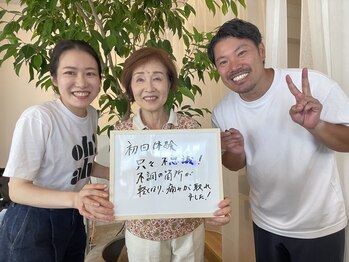 初回体験
只々不思議!
不調の箇所が
軽くなり、痛みが取れ
ました!
oh!